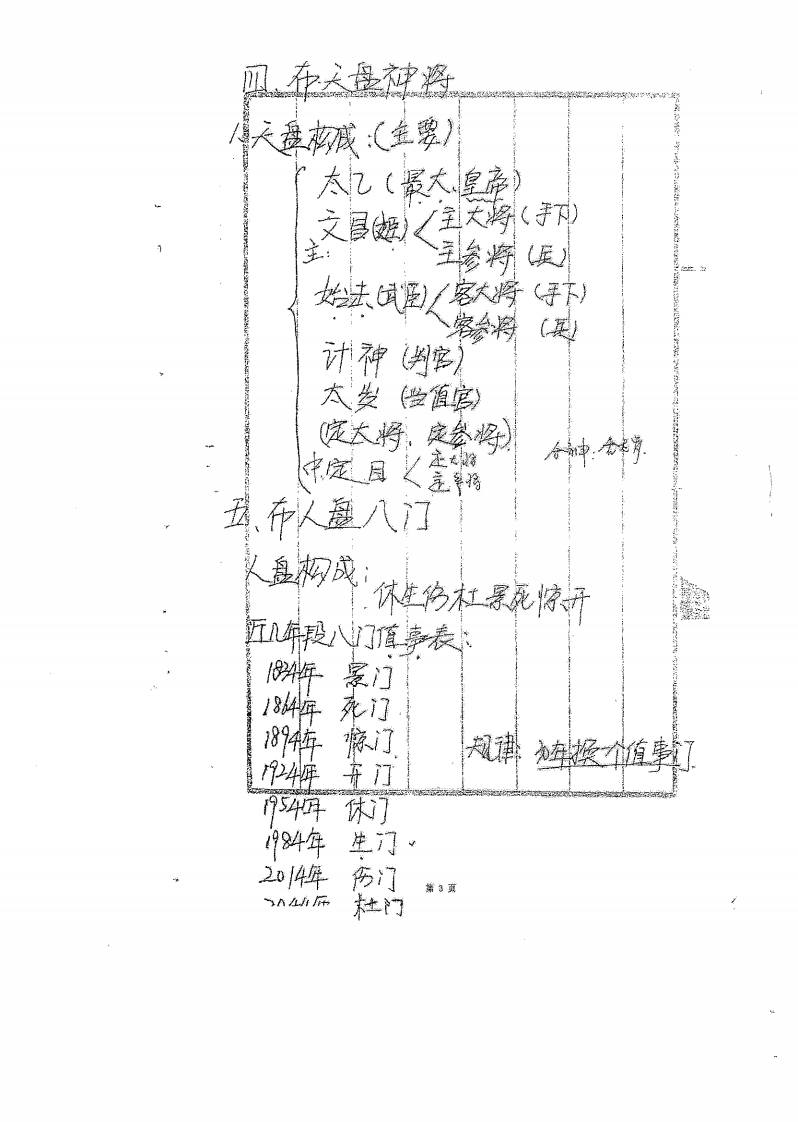 四、布天盘神将
1、天盘构成：(主要)
太乙（最大、皇帝）
文昌(姬) 主大将（手下）
主: 主参将（兵）
始击(武臣) 客大将（手下）
客参将（兵）
计神（判官）
太岁（当值官）
(定大将、定参将)
定目 定大将
定参将
合神:
五、布人盘八门
人盘构成：
休生伤杜景死惊开
近几年段八门值事表：
1834年 景门
1864年 死门
1894年 惊门
规律: 30年换一个值事门
1924年 开门
1954年 休门
1984年 生门
2014年 伤门
第 3 页
2044年 杜门